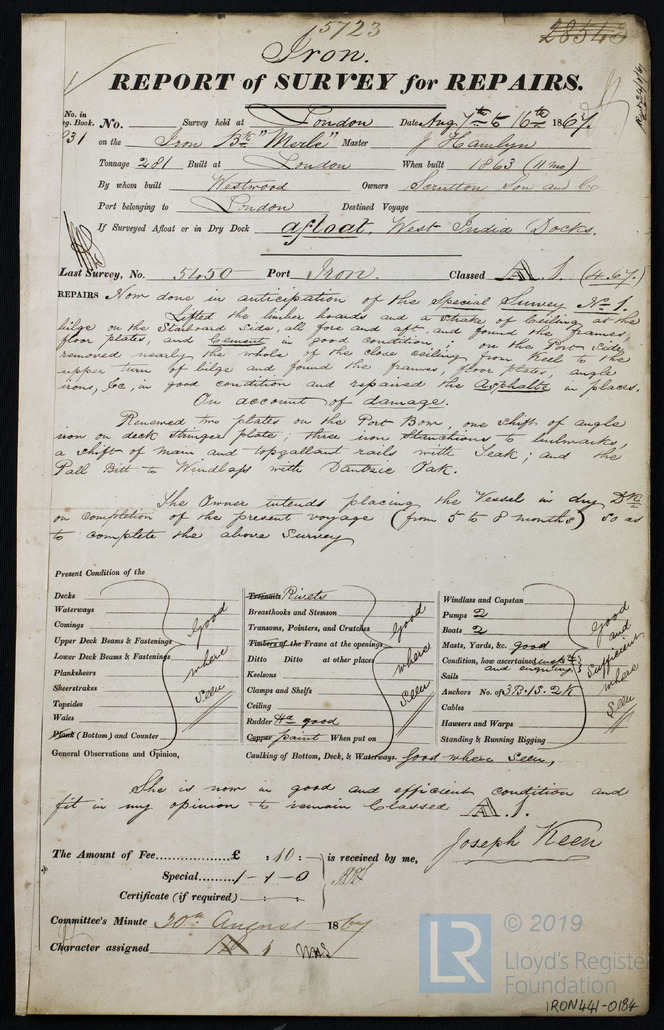 5723
28543
Iron.
REPORT of SURVEY for REPAIRS.
No. in Reg. Book. No. Survey held at London Date Aug. 7th to 16th 1867.
231 on the Iron Bk "Merle" Master J Hamlyn
Tonnage 281 Built at London When built 1863 (11 mo)
By whom built Westwood Owners Scrutton Son and Co
Port belonging to London Destined Voyage
If Surveyed Afloat or in Dry Dock afloat. West India Docks.
Last Survey, No. 5450 Port Iron Classed A. 1. (4.67.)
REPAIRS Now done in anticipation of the Special Survey No 1.
Lifted the limber boards and a strake of Ceiling at the
bilge on the Starboard Side, all fore and aft and found the frames,
floor plates, and Cement in good condition; on the Port Side,
removed nearly the whole of the close ceiling from Keel to the
upper turn of bilge and found the frames, floor plates, angle
irons, &c, in good condition and repaired the Asphalte in places.
On account of damage.
Renewed two plates on the Port Bow, one shift of angle
iron on deck stringer plate; three iron Stanchions to bulwarks,
a shift of main and topgallant rails with Teak; and the
Pall Bitt to Windlass with Dantzic Oak.
The Owner intends placing the Vessel in dry Dk
on completion of the present voyage (from 5 to 8 months) so as
to complete the above Survey
Present Condition of the
Decks
Waterways
Comings
Upper Deck Beams & Fastenings
Lower Deck Beams & Fastenings
Planksheers
Sheerstrakes
Topsides
Wales
Plank (Bottom) and Counter
Good where seen
Treenails Rivets
Breasthooks and Stemson
Transoms, Pointers, and Crutches
Timbers of the Frame at the openings
Ditto Ditto at other places
Keelsons
Clamps and Shelfs
Ceiling
Rudder Hd good
Copper paint When put on
Good where seen
Windlass and Capstan
Pumps 2
Boats 2
Masts, Yards, &c. good
Condition, how ascertained
and enquiring
Sails
Anchors No. of 3B. 1S. 2K
Cables
Hawsers and Warps
Standing & Running Rigging
Good and Sufficient where Seen
General Observations and Opinion, Caulking of Bottom, Deck, & Waterways. Good where seen,
She is now in good and efficient condition and
fit in my opinion to remain Classed A. 1.
Joseph Keen
The Amount of Fee £ : 10 : is received by me,
Special 1 - 1 - 0
Certificate (if required)
Committee's Minute 30th August 1867
Character assigned A 1
LR
© 2019
Lloyd's Register
Foundation
IRON441-0184